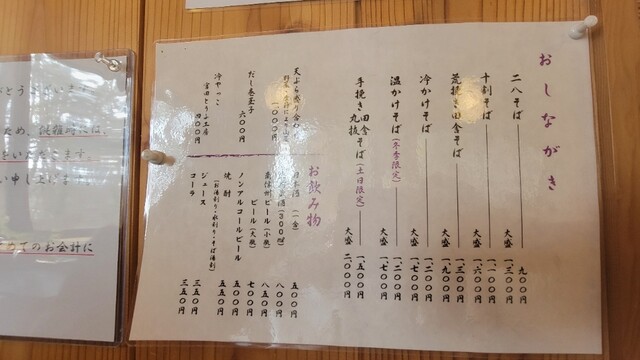 おしながき
二八そば 九〇〇円
大盛 一、三〇〇円
十割そば 一、一〇〇円
大盛 一、六〇〇円
荒挽き田舎そば 一、三〇〇円
大盛 一、九〇〇円
冷かけそば 一、二〇〇円
大盛 一、七〇〇円
温かけそば(冬季限定) 一、二〇〇円
大盛 一、七〇〇円
手挽き田舎丸抜そば(土日限定) 一、五〇〇円
大盛 二、〇〇〇円
天ぷら盛り合わ
一〇〇〇円
だし巻玉子
六〇〇円
冷やっこ
宮田とうふ工房
四〇〇円
お飲み物
日本酒(一合) 五〇〇円
(300㎖) 八〇〇円
ビール(大瓶) 八五〇円
南信州ビール(小瓶) 七〇〇円
ノンアルコールビール 五〇〇円
焼酎 五五〇円
(お湯割り・水割り・そば湯割)
ジュース 三五〇円
コーラ 三五〇円
とうございます。
ため、
をいただきます。
い申し上げます。
てのお会計に